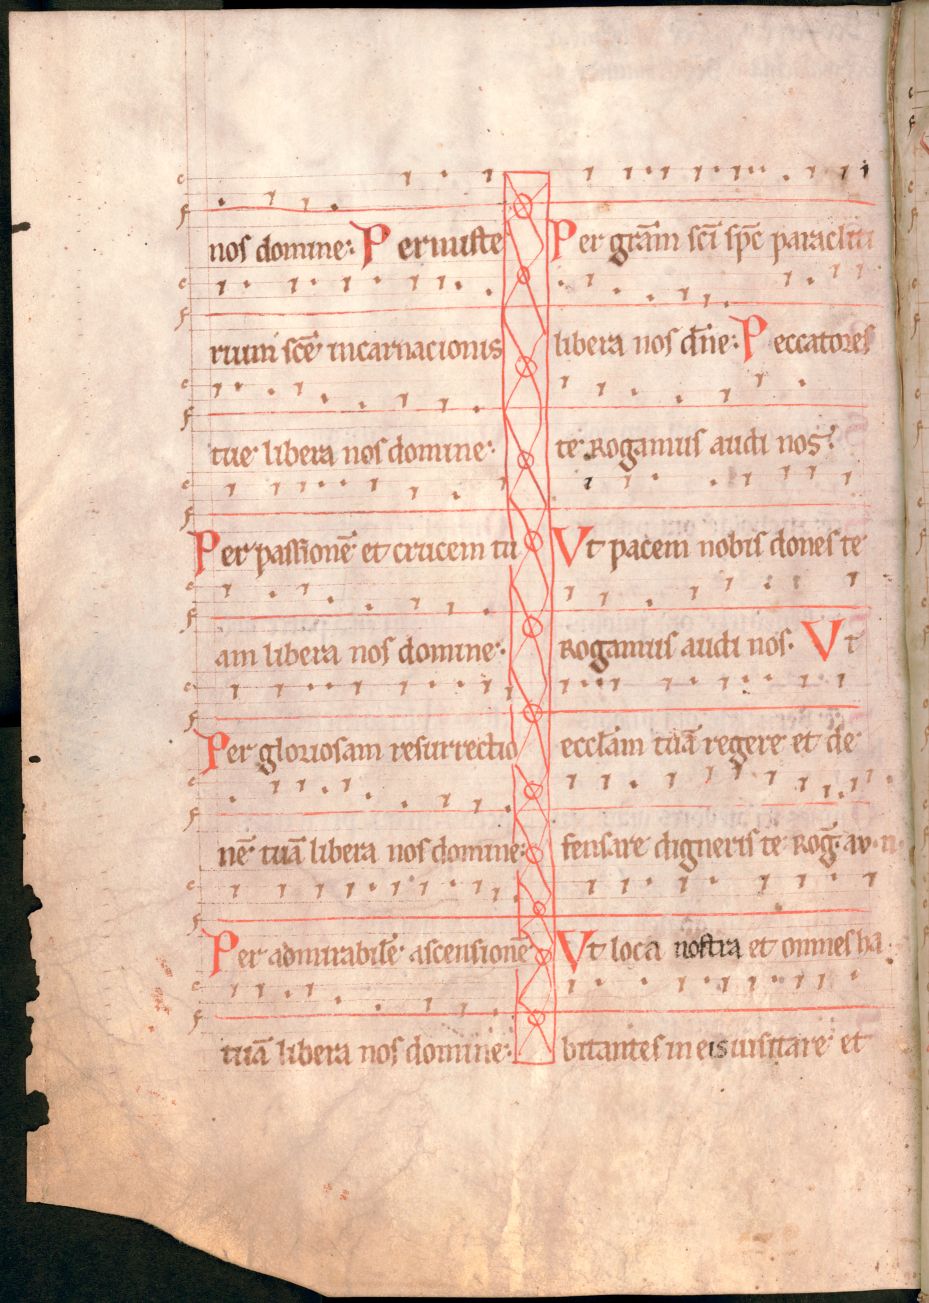 nos domine: Per miste
rium scē incarnacionis
tue libera nos domine.
Per passionē et crucem tu
am libera nos domine.
Per gloriosam resurrectio
nē tuā libera nos domine:
Per admirabilē ascensionē
tuā libera nos domine:
Per grām scī spc paracliti
libera nos dn̄e: Peccatores
te Rogamus audi nos.
Vt pacem nobis dones te
Rogamus audi nos. Vt
eccłam tuā regere et de
fensare digneris te Roḡ. au. n.
Vt loca nostra et omnes ha
bitantes in eis uisitare et